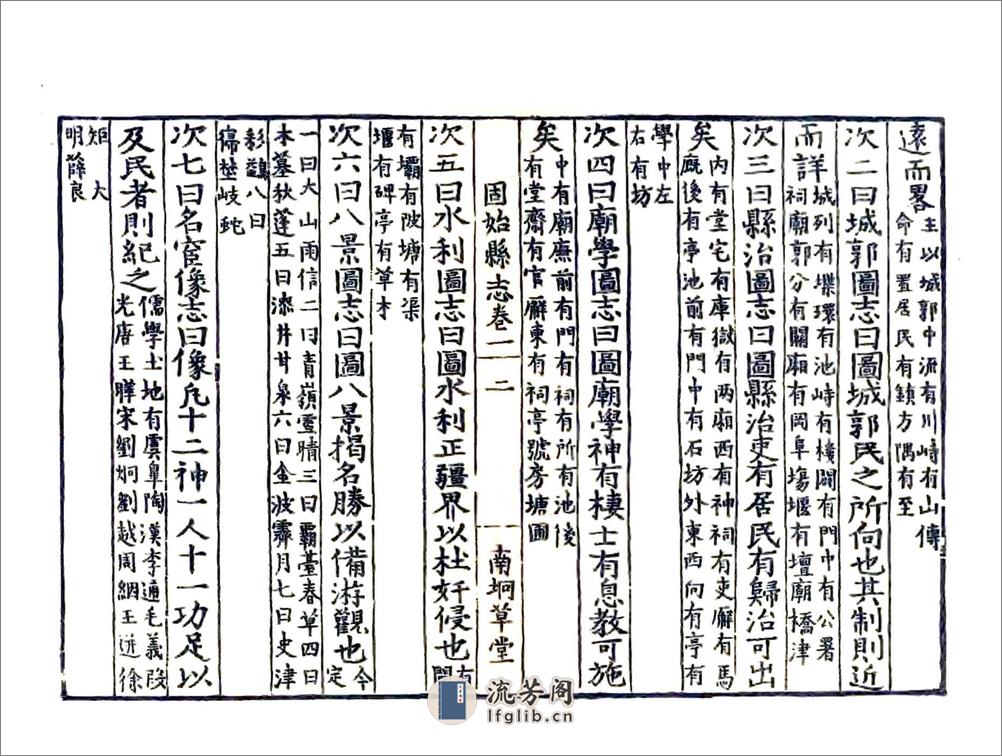 遠而畧主以城郭中流有川峙有山傳
命有置居民有鎮方隅有至
次二曰城郭圖志曰圖城郭民之所向也其制則近
而詳城列有堞環有池峙有樓闢有門中有公署
祠廟郭分有關廂有岡阜塲堰有壇廟橋津
次三曰縣治圖志曰圖縣治吏有居民有歸治可出
矣內有堂宅有庫獄有两廂西有神祠有吏廨有馬
廐後有亭池前有門中有石坊外東西向有亭有
學中左
右有坊
次四曰廟學圖志曰圖廟學神有棲士有息教可施
矣中有廟廡前有門有祠有所有池後
有堂齋有官廨東有祠亭號房塘圃
固始縣志卷一 二 南垌草堂
次五曰水利圖志曰圖水利正疆界以杜奸侵也有
閘
有壩有陂塘有渠
堰有碑亭有草才
次六曰八景圖志曰圖八景揭名勝以備游觀也今
定
一曰大山雨信二曰青嶺雪晴三曰霸臺春草四曰
本墓秋蓬五曰漆井甘泉六曰金波霽月七曰史津
彩鷁八曰
埜岐蛇
次七曰名宦像志曰像凡十二神一人十一功足以
及民者則紀之儒學土地有虞臯陶漢李通毛義段
光唐王曄宋劉炯劉越周綱王徐
矩 大
明薛良
流芳阁
lfglib.cn